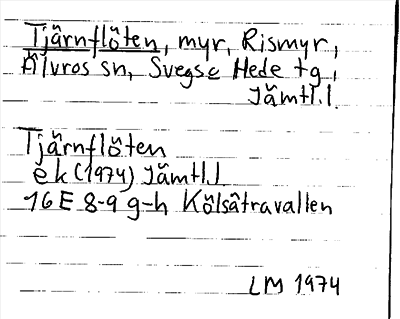 Tjärnflöten, myr, Rismyr,
Älvros sn, Svegs o Hede tg,
Jämtl.l.
Tjärnflöten
ek (1974) Jämtl.l
16E 8-9 g-h Kölsätravallen
LM 1974